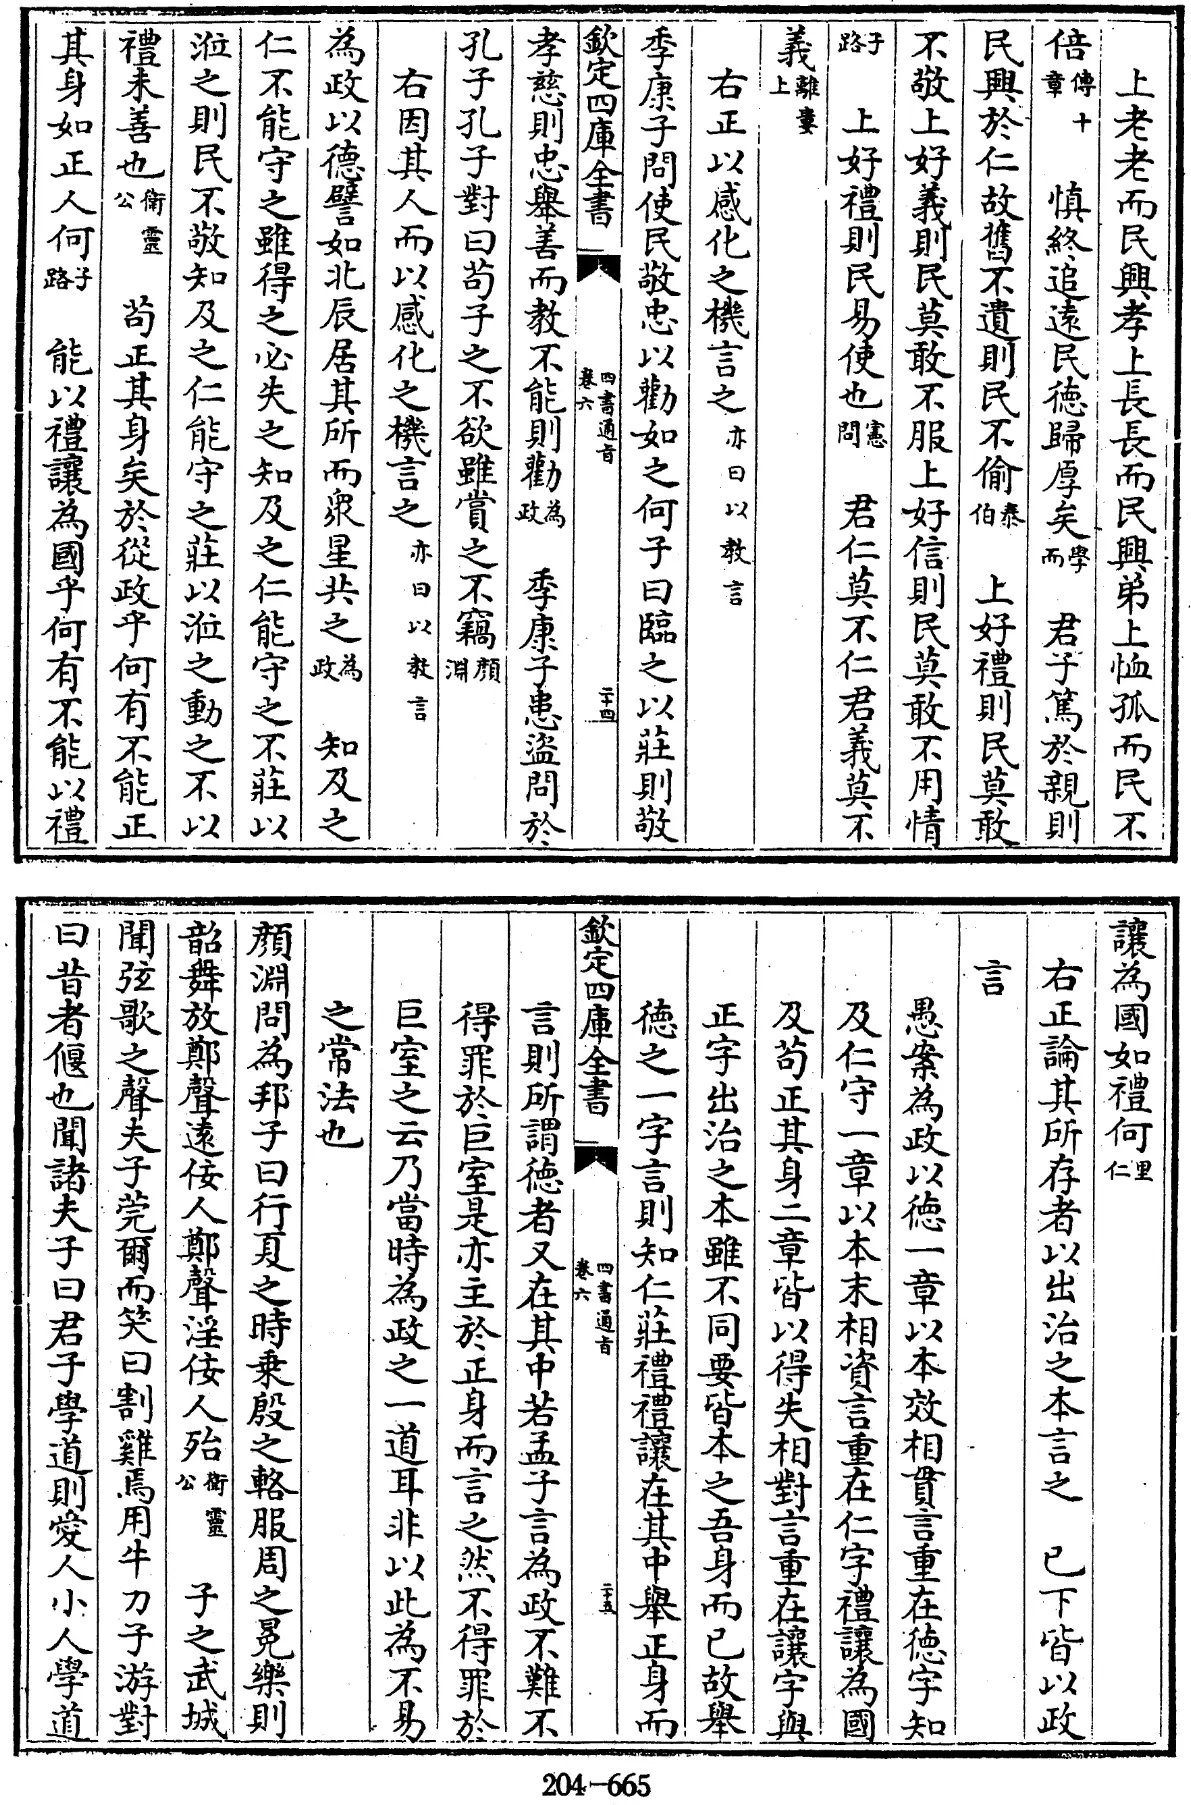 上老老而民興孝上長長而民興弟上恤孤而民不
倍傳十章　慎終追遠民德歸厚矣學而　君子篤於親則
民興於仁故舊不遺則民不偷泰伯　上好禮則民莫敢
不敬上好義則民莫敢不服上好信則民莫敢不用情
子路　上好禮則民易使也憲問　君仁莫不仁君義莫不
義離婁上
右正以感化之機言之亦曰以教言
季康子問使民敬忠以勸如之何子曰臨之以莊則敬
欽定四庫全書　四書通旨卷六　二十四
孝慈則忠舉善而教不能則勸為政　季康子患盜問於
孔子孔子對曰苟子之不欲雖賞之不竊顏淵
右因其人而以感化之機言之亦曰以教言
為政以德譬如北辰居其所而衆星共之為政　知及之
仁不能守之雖得之必失之知及之仁能守之不莊以
涖之則民不敬知及之仁能守之莊以涖之動之不以
禮未善也衛靈公　苟正其身矣於從政乎何有不能正
其身如正人何子路　能以禮讓為國乎何有不能以禮
讓為國如禮何里仁
右正論其所存者以出治之本言之　已下皆以政
言
愚案為政以德一章以本效相貫言重在德字知
及仁守一章以本末相資言重在仁字禮讓為國
及苟正其身二章皆以得失相對言重在讓字與
正字出治之本雖不同要皆本之吾身而已故舉
德之一字言則知仁莊禮禮讓在其中舉正身而
欽定四庫全書　四書通旨卷六　二十五
言則所謂德者又在其中若孟子言為政不難不
得罪於巨室是亦主於正身而言之然不得罪於
巨室之云乃當時為政之一道耳非以此為不易
之常法也
顏淵問為邦子曰行夏之時乘殷之輅服周之冕樂則
韶舞放鄭聲遠佞人鄭聲淫佞人殆衛靈公　子之武城
聞弦歌之聲夫子莞爾而笑曰割雞焉用牛刀子游對
曰昔者偃也聞諸夫子曰君子學道則愛人小人學道
204-665